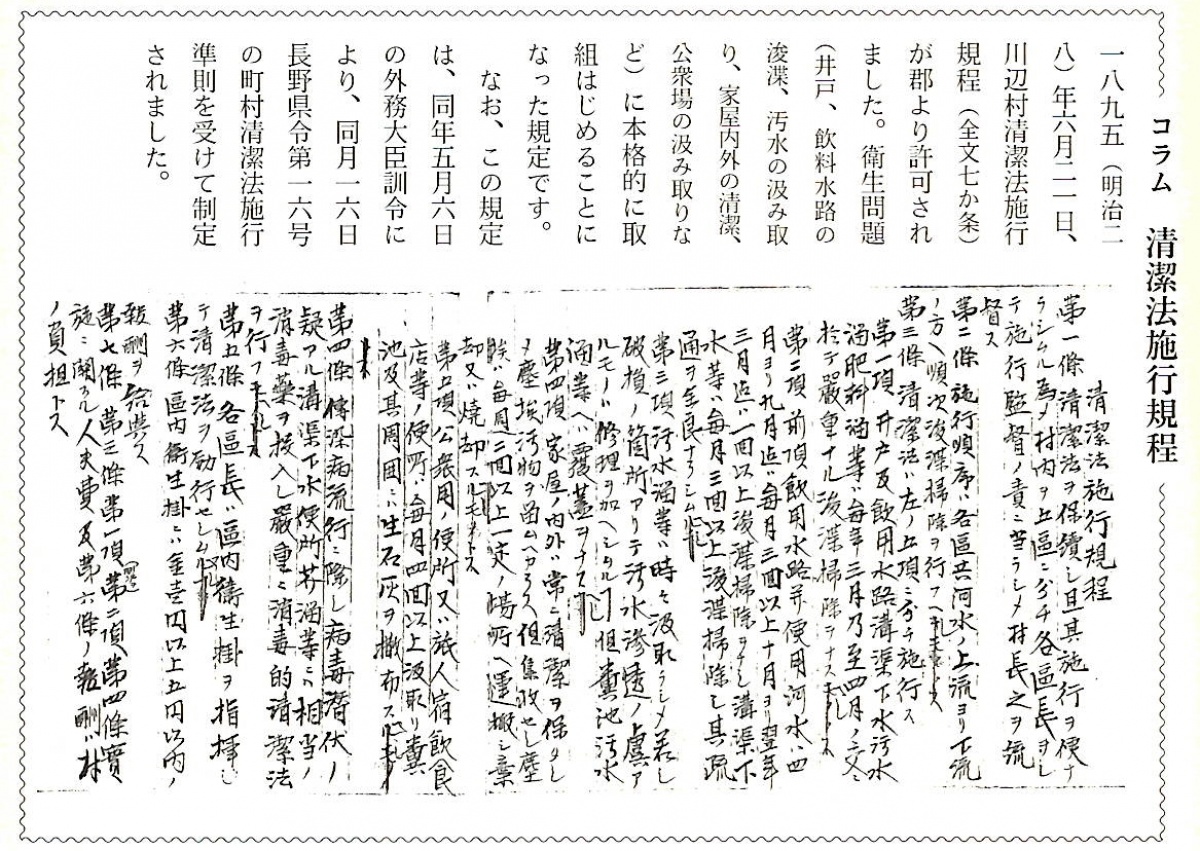 コラム 清潔法施行規程
一八九五（明治二
八）年六月二一日、
川辺村清潔法施行
規程（全文七か条）
が郡より許可され
ました。衛生問題
（井戸、飲料水路の
浚渫、汚水の汲み取
り、家屋内外の清潔、
公衆場の汲み取りな
ど）に本格的に取
組はじめることに
なった規定です。
なお、この規定
は、同年五月六日
の外務大臣訓令に
より、同月一六日
長野県令第一六号
の町村清潔法施行
準則を受けて制定
されました。
清潔法施行規程
第一條 清潔法ヲ保續シ且其施行ヲ便ナ
ラシムル為メ村内ヲ五區ニ分チ各區長ヲシ
テ施行監督ノ責ニ當ラシメ村長之ヲ
督ス
第二條 施行順序ハ各區共河水ノ上流ヨリ下流
ノ方ヘ順次浚渫掃除ヲ行フ
第三條 清潔法ハ左ノ五項ニ分テ施行ス
第一項 井戸及飲用水路溝渠下水汚水
溜肥料溜等ハ毎年三月乃至四月ノ
於テ嚴重ナル浚渫掃除ヲナス
第二項 前項飲用水路并使用河水ハ四
月ヨリ九月迄ハ毎月三回以上十月ヨリ翌年
三月迄ハ一回以上浚渫掃除ヲナシ溝渠下
水等ハ毎月三回以上浚渫掃除シ其疏
通ヲ全良ナラシム
第三項 汚水溜等ハ時々汲取ラシメ若シ
破損ノ箇所アリテ汚水滲透ノ虞ア
ルモノハ修理ヲ加ヘシメ 但糞池汚水
溜等ヘハ覆蓋ヲナス
第四項 家屋ノ内外ハ常ニ清潔ヲ保タシ
メ塵埃汚物ヲ 但集收セシ塵
埃ハ毎周三回以上一定ノ場所ヘ運搬シ棄
却又ハ焼却スル
第五項 公衆用ノ便所又ハ旅人宿飲食
店等ノ便所ハ毎月四回以上汲取リ糞
池及其周囲ニハ生石灰ヲ撒布ス
第四條 傳染病流行ニ際シ病毒潜伏ノ
疑アル溝渠下水便所芥溜等ニハ相當ノ
消毒藥ヲ投入シ嚴重ニ消毒的清潔法
ヲ行フ
第五條 各區長ハ區内衛生掛ヲ指揮シ
テ清潔法ヲ勵行セシム
第六條 區内衛生掛ハ金壱円以上五円以内ノ
報酬ヲ給與ス
第七條 第三條第一項第二項第四條實
施ニ関スル人夫費及第六條ノ報酬ハ村
ノ負担トス